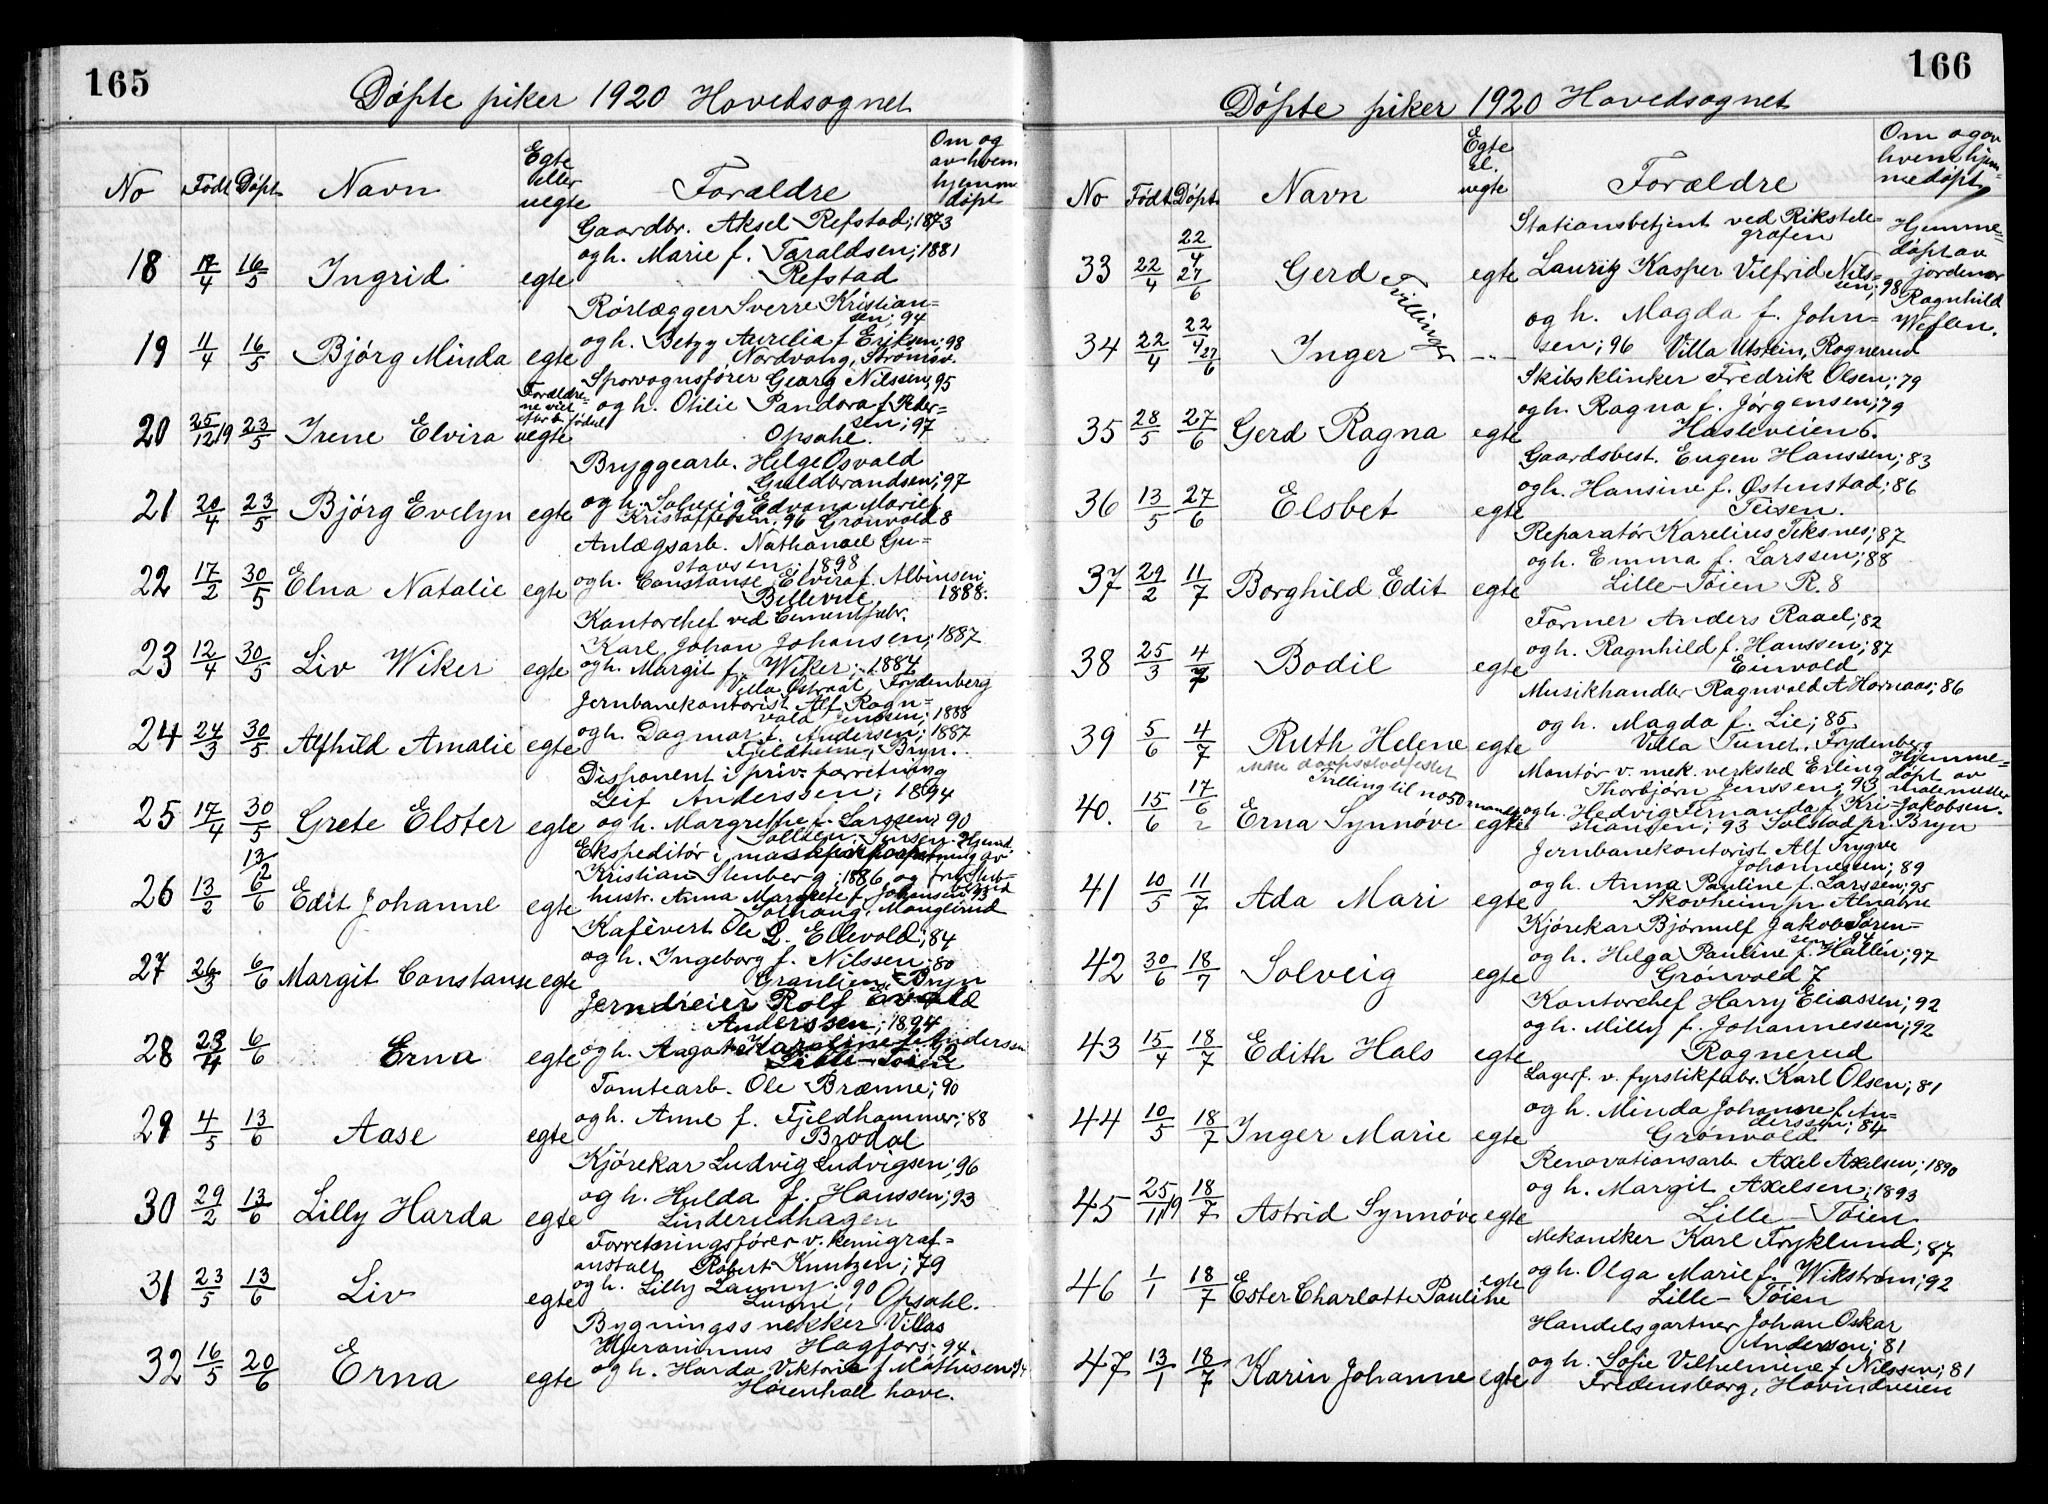 165
Døpte piker 1920 Hovedsognet
No Født Døpt Navn Egte eller uegte Forældre Om og av hvem hjemmedøpt
18 17/4 16/5 Ingrid egte
Gaardbr. Aksel Refstad; 1873
og h. Marie f. Taraldsen; 1881
Refstad
19 11/4 16/5 Bjórg Minda egte
Rørlægger Sverre Kristian=
sen; 94
og h. Betzy Aurelia f Eriksen; 98
Nordvang, Strømsv.
20 25/12 19 23/5 Irene Elvira uegte
Forældre=
ne viet
efter b. fødsel
Sporvognsfører Georg Nilssen; 95
og h. Otilie Pandora f. Peder=
sen; 97
Opsahl.
21 20/4 23/5 Bjórg Evelyn egte
Bryggearb. Helge Osvald
Guldbrandsen; 97
og h. Solveig Edvana Marie f.
Kristoffersen, 96 Grønvold 8
22 17/2 30/5 Elna Natalie egte
Anlægsarb. Nathanael Gu=
stavsen; 1898
og h. Constanse Elvira f. Albinsen;
Bellevue 1888.
23 12/4 30/5 Liv Wiker egte
Kontorchef ved Cementfabr.
Karl Johan Johansen; 1887
og h. Margit f. Wiker; 1884
Villa Østraat, Frydenberg
24 24/3 30/5 Alfhild Amalie egte
Jernbanekontorist Alf Ragn=
vald Jenssen; 1888
og h. Dagmar f. Andersen; 1887
Fjeldheim, Bryn.
25 17/4 30/5 Grete Elster egte
Disponent i priv. forretning
Leif Anderssen; 1894
og h. Margrethe f. Larssen; 90
Sollien, Sinsen
26 13/2 13/2 6/6 Edit Johanne egte
Ekspeditór i maskinforretning
Kristian Stenberg; 1886 og
hustr. Anna Margrete f Johansen 93
Solhaug, Manglerud
Hjemd.
av
27 26/3 6/6 Margit Constanse egte
Kafévert Ole L. Ellevold; 84
og h. Ingeborg f. Nilssen; 80
Granlien, Bryn
28 23/4 6/6 Erna egte
Jerndreier Rolf Evald
Anderssen; 1894
og h. Aagot Karoline f. Anderssen
Lille-Tøien 2
29 4/5 13/6 Aase egte
Tomtearb. Ole Brænne; 90
og h. Anne f. Fjeldhammer; 88
Brodal
30 29/2 13/6 Lilly Harda egte
Kjørekar Ludvig Ludvigsen; 96
og h. Hulda f. Hanssen; 93
Linderudhagen
31 23/5 13/6 Liv egte
Forretningsfører v. kemigraf=
anstalt Robert Knutzen; 79
og h. Lilly Launy; 90
Opsahl.
32 16/5 20/6 Erna egte
Bygningssnekker Villas
Hieronimus Hagfors; 94.
og h. Harda Viktoria f Mathisen;
Hasenhall have.
166
Døpte piker 1920 Hovedsognet
No Født Døpt Navn Egte el. uegte Forældre Om og av hvem hjemmedøpt
33 22/4 22/4 27/6 Gerd egte
Tvillinger
Stationsbetjent ved Rikstele=
grafen
Lauritz Kasper Vilfrid Nils=
sen; 98
Hjemme=
døpt av
jordmor
Ragnhild
Weflen.
34 22/4 22/4 27/6 Inger -"-
og h. Magda f. John=
sen; 96 Villa Utstein, Rognerud
35 28/5 27/6 Gerd Ragna egte
Skibsklinker Fredrik Olsen; 79
og h. Ragna f. Jørgensen; 79
Hasleveien 6.
36 13/5 27/6 Elsbet egte
Gaardsbest. Eugen Hanssen; 83
og h. Hansine f. Østenstad; 86
Teisen.
37 29/2 11/7 Borghild Edit egte
Reparatør Karelius Teksnes; 87
og h. Emma f. Larssen; 88
Lille-Tøien R. 8
38 25/3 4/7 Bodil egte
Former Anders Raael; 82
og h. Ragnhild f. Hanssen; 87
Einvold
39 5/6 4/7 Ruth Helene egte
Musikhandler Ragnvald A Hornaas; 86
og h. Magda f. Lie; 85.
Villa Tunet, Frydenberg
40. 15/6 17/6 Erna Synnøve egte
Tvilling til no 50 mandkj.
Montór v. mek. verksted Erling
Thorbjørn Jenssen; 93
og h. Hedvig Fernanda f. Kri=
stiansen; 93 Solstad pr. Bryn
Hjemme=
døpt av
Jakobsen.
41 10/5 11/7 Ada Mari egte
Jernbanekontorist Alf Trygve
Johannessen; 89
og h. Anna Pauline f. Larssen; 95
Skovheim pr Alnabru
42 30/6 18/7 Solveig egte
Kjørekar Bjórnulf Jakob Søren=
sen; 94
og h. Helga Pauline f. Hallén; 97
Grónvold 7
43 15/4 18/7 Edith Hals egte
Kontorchef Harry Eliassen; 92
og h. Milly f. Johannessen; 92
Rognerud
44 10/5 18/7 Inger Marie egte
Lagerf. v. fyrstikfabr. Karl Olsen; 81
og h. Minda Johanne f. An=
derssen; 84
Grónvold
45 25/11 19 18/7 Astrid Synnøve egte
Renovationsarb. Axel Axelsen; 1890
og h. Margit Axelsen; 1893
Lille-Tøien
46 1/1 18/7 Ester Charlotte Pauline egte
Mekaniker Karl Fryklund; 87
og h. Olga Marie f. Wikstrøm; 92
Lille-Tøien
47 13/1 18/7 Karin Johanne egte
Handelsgartner Johan Oskar
Andersson; 81
og h. Sofie Vilhelmine f Nilssen; 81
Fredensborg, Hovindveien